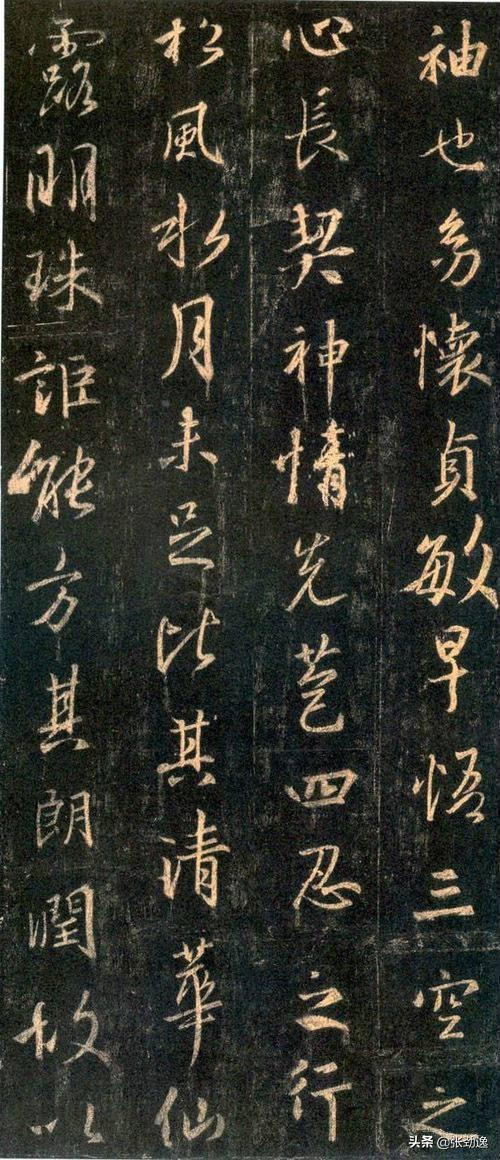 袖也幼懷貞敏早悟三空之
心長契神情先苞四忍之行
松風水月未足比其清華仙
露明珠詎能方其朗潤故以
头条 @张劲逸